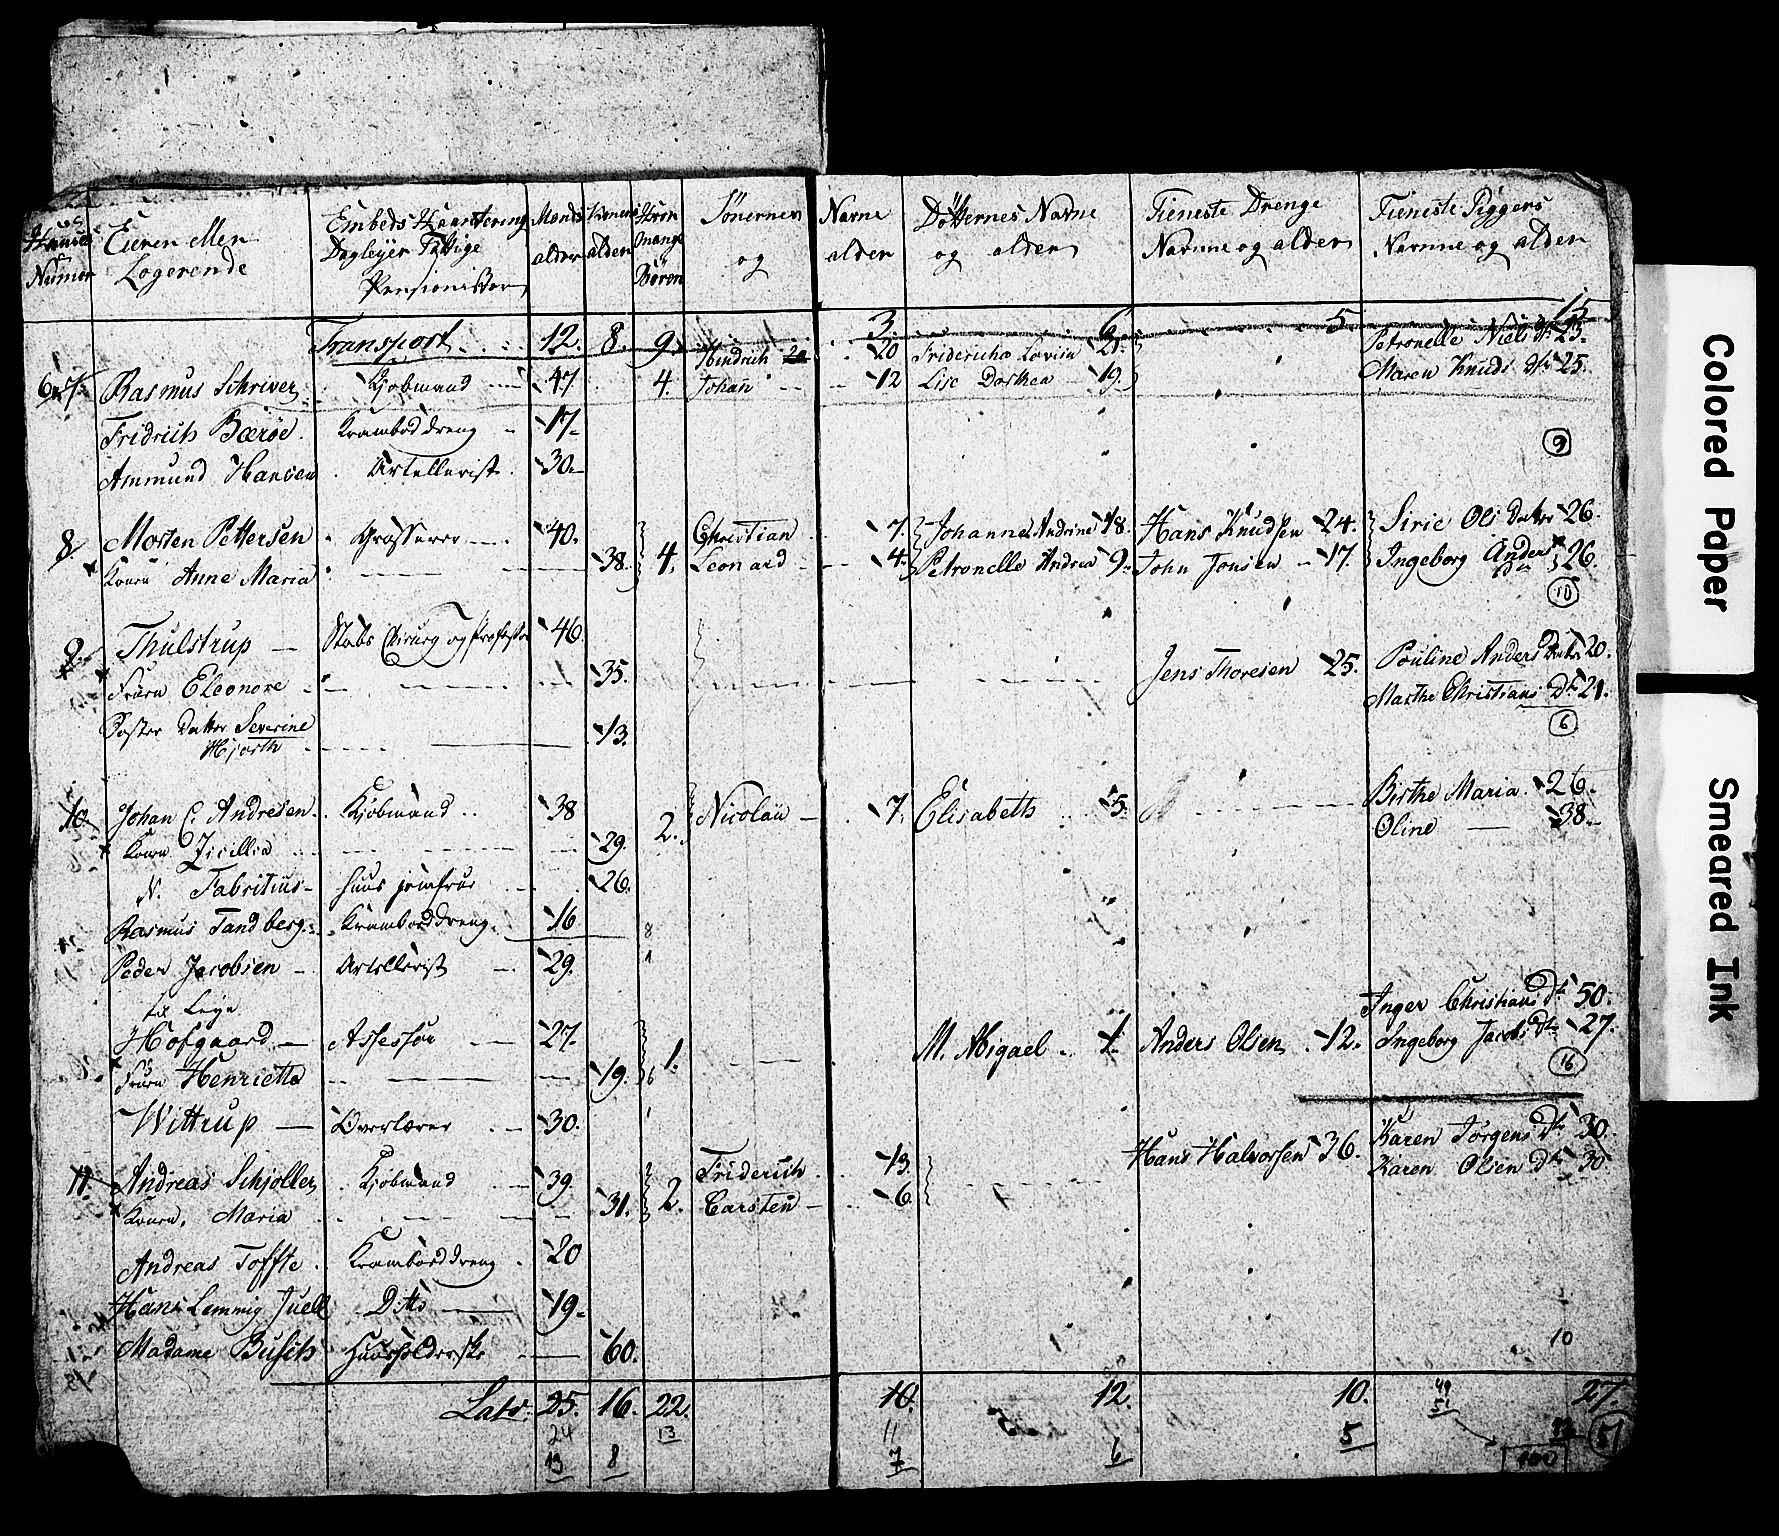 Huuses Numer | Eieren eller Logerende | Embeds Haantering Dagleyer Fattige Pensionister | Mands alder | Konens alder | Hvor mange Børen | Sønernes og | Navne alder | Døtternes Navne og alder | Tieneste Drenge Navnne og alder | Tieneste Piggers Navnne og alder
Transport | 12. | 8. | 9. | 3. | 6. | 5. | 15
Hindrich 20 | 20 | Fridericha Lovisa 21. | Petronelle Niels Dr 23.
6 & 7 | Rasmus Schriver | Kjøbmand | 47 | 4. | Johan | 12 | Lise Dorthea 19. | Maren Knuds Dr 25.
Fridrich Bærøe. | Kramboddreng | 17
Ammund Hansen | Artellerist | 30 | 9
8. | Morten Pettersen | Grosserer | 40. | Christian | 7. | Johanne Andrine 18. | Hans Knudsen 24. | Sirie Ols Datter 26.
Konen Anne Maria | 38. | 4. | Leonard | 4. | Petronelle Andrea 9. | John Jonsen 17. | Ingeborg Anders Dr 26.
10
9. | Thulstrup | Stabs Chirurg og Professor | 46
Fruen Eleonore | 35. | Jens Thoresen 25. | Pouline Anders Datter 20.
Marthe Christians Dr 21.
Foster Datter Severine Hjorth | 13. | 6
10. | Johan C. Andresen | Kjøbmand | 38 | 2. | Nicolau | 7. | Elisabeth 5. | Birthe Maria 26.
Konen Zicillia | 29. | Oline 38.
N. Fabritius | Huus jomfrue | 26.
Rasmus Tandberg | Kramboddreng | 16 | 8
Peder Jacobsen | Artellerist | 29. | 1
til Leye | Inger Christians Dr 50.
Hofgaard | Assessor | 27. | 1. | M. Abigael 1. | Anders Olsen 12. | Ingeborg Jacobs Dr 27.
Fruen Henrietta | 19. | 6 | 16
Wittrup | Overlærer | 30. | Karen Jørgens Dr 30
Hans Halvorsen 36.
11. | Andreas Schjøller | Kjøbmand | 39. | 2. | Friderich | 13. | Karen Olsen Dr 30
Konen, Maria | 31. | Carsten | 6.
Andreas Toffte | Kramboddreng | 20
Hans Lemmig Juell | Ditto | 19.
Madame Busch | Huusholderske | 60. | 10
Latr. | 25. | 16. | 22. | 10. | 12. | 10. | 49 51 | 27.
24 | 13 | 11 | 51
13 | 8 | 7 | 6 | 5 | 100
Colored Paper
Smeared Ink